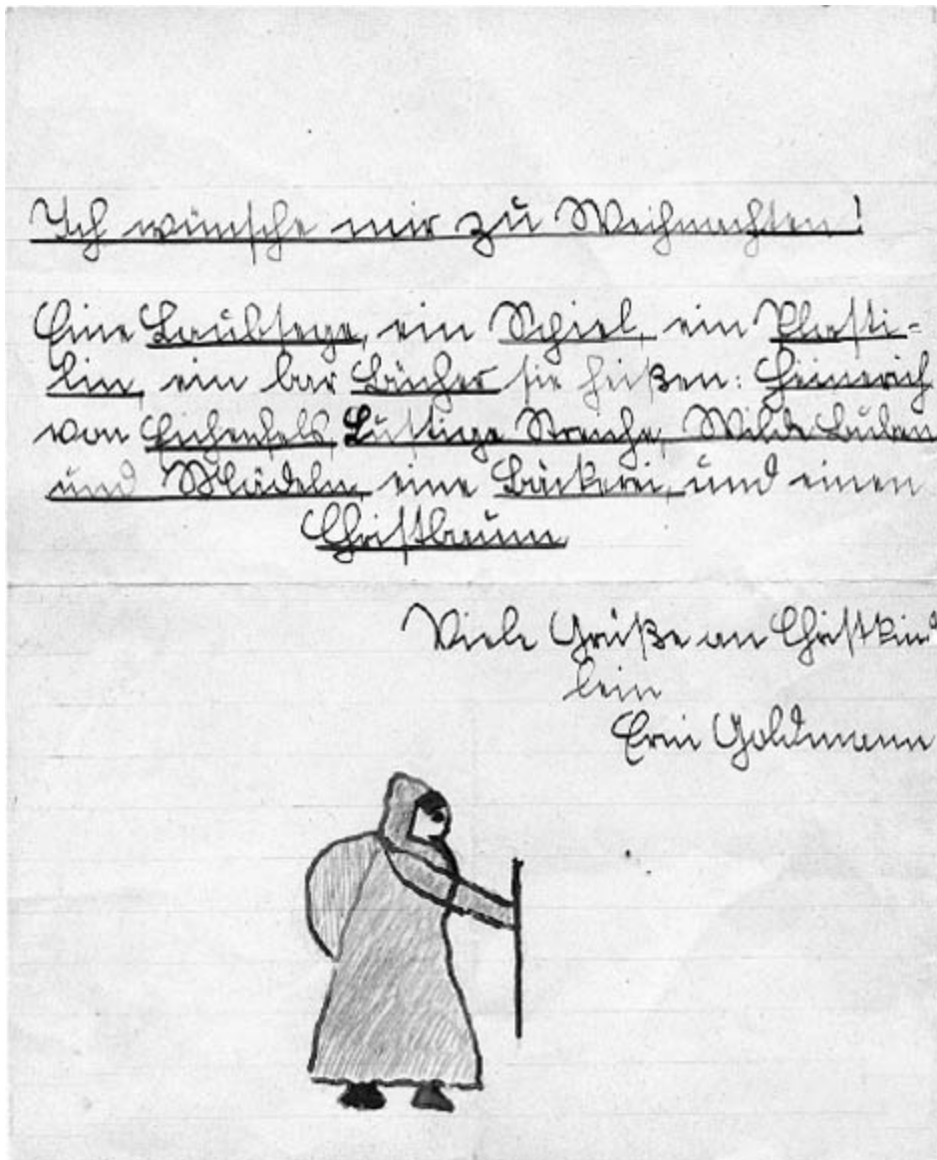 Ich wünsche mir zu Weihnachten!
Eine Laubsege, ein Spiel, ein Plasti-
lin, ein bar Bücher sie heißen: Heinerich
von Eichenfels, Lustige Streiche, Wilde Buben
und Mädeln, eine Bäckerei, und einen
Christbaum
Viele Grüße an Christkind
lein
Goldmann